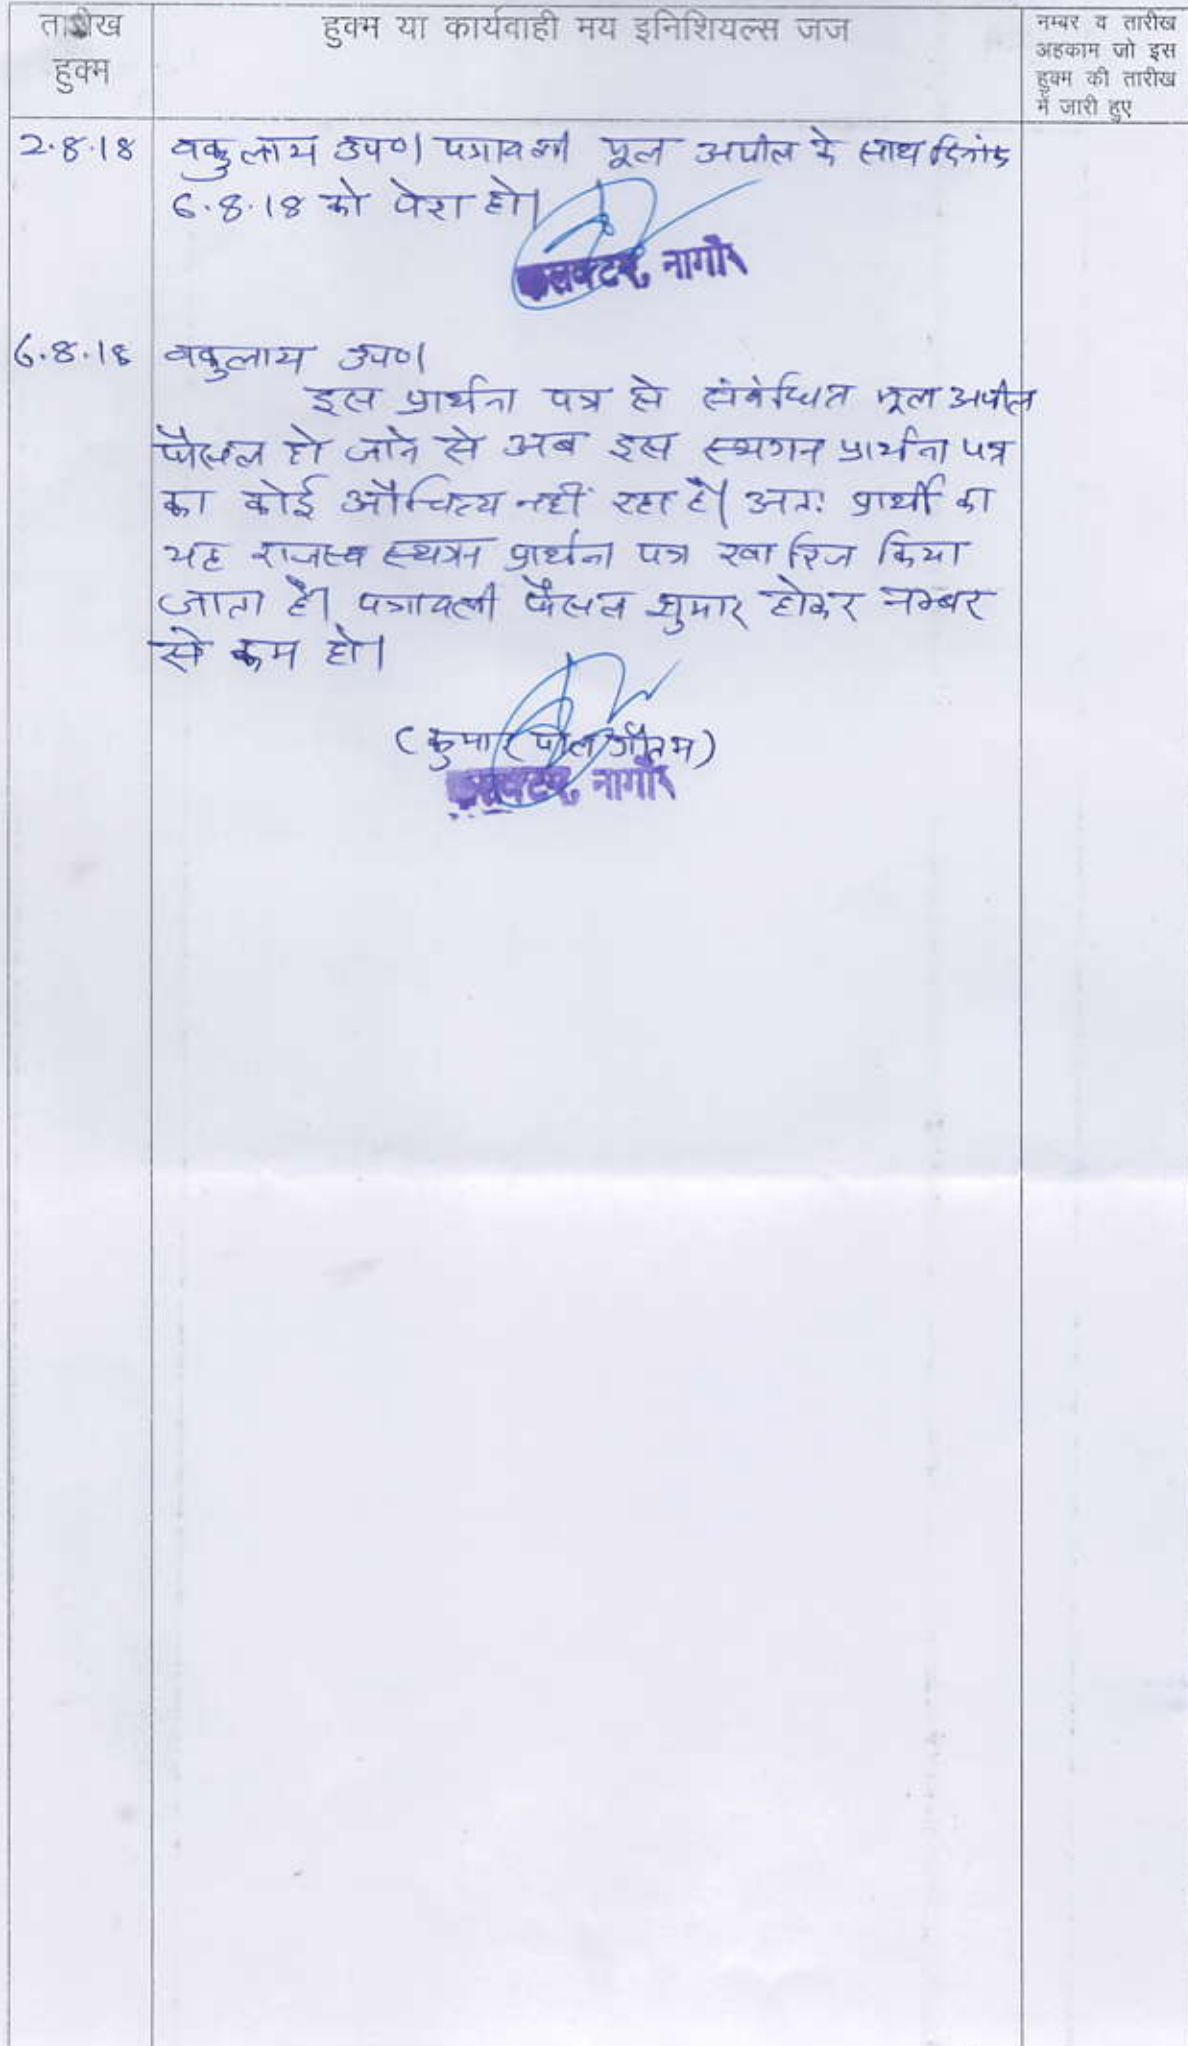 तारीख
हुक्म
हुक्म या कार्यवाही मय इनिशियल्स जज
नम्बर व तारीख
अहकाम जो इस
हुक्म की तारीख
में जारी हुए
2.8.18 वकुलाय उप०। पत्रावली मूल अपील के साथ दिनांक
6.8.18 को पेश हो।
कलक्टर, नागौर
6.8.18 वकुलाय उप०।
इस प्रार्थना पत्र से संबंधित मूल अपील
फैसल हो जाने से अब इस स्थगन प्रार्थना पत्र
का कोई औचित्य नहीं रहा है। अतः प्रार्थी का
यह राजस्व स्थगन प्रार्थना पत्र खारिज किया
जाता है। पत्रावली फैसल शुमार होकर नम्बर
से कम हो।
(कुमार पाल गौतम)
कलक्टर, नागौर